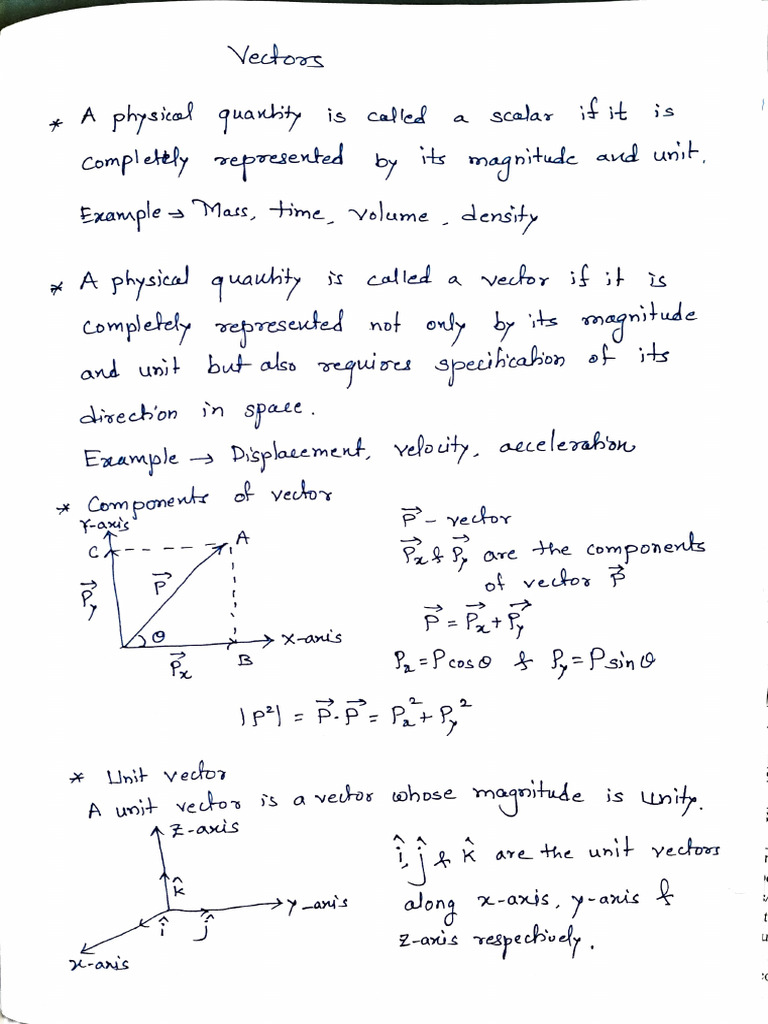 Vectors
* A physical quantity is called a scalar if it is
completely represented by its magnitude and unit.
Example → Mass, time, volume, density
* A physical quantity is called a vector if it is
completely represented not only by its magnitude
and unit but also requires specification of its
direction in space.
Example → Displacement, velocity, acceleration
* Components of vector
Y-axis
C
A
P⃗y
P⃗
θ
X-axis
P⃗x
B
P⃗ - vector
P⃗x & P⃗y are the components
of vector P⃗
P⃗ = P⃗x + P⃗y
Px = P cos θ & Py = P sin θ
|P²| = P⃗ . P⃗ = Px² + Py²
* Unit vector
A unit vector is a vector whose magnitude is unity.
Z-axis
k̂
y-axis
î
ĵ
x-axis
î, ĵ & k̂ are the unit vectors
along x-axis, y-axis &
z-axis respectively.